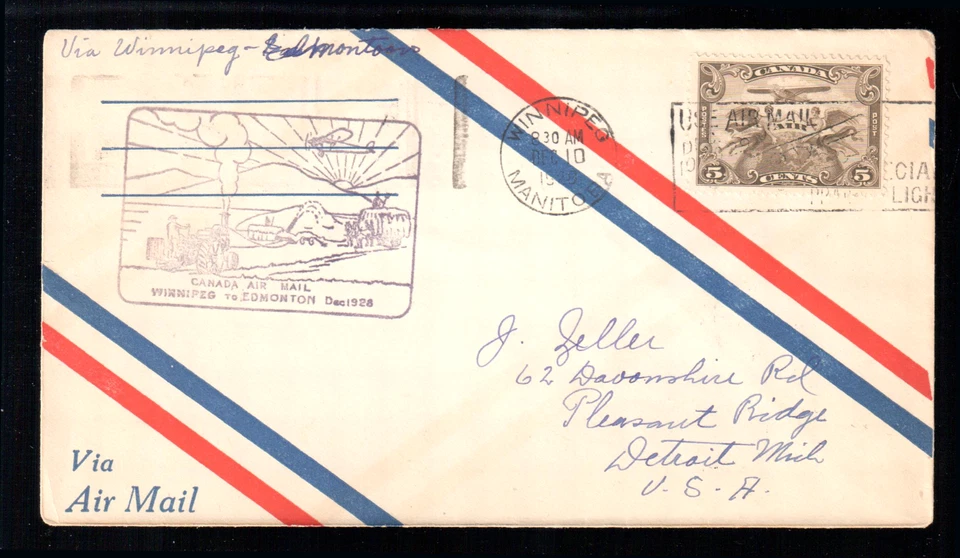 Via Winnipeg - Edmonton
CANADA AIR MAIL
WINNIPEG TO EDMONTON Dec 1928
WINNIPEG
8 30 AM
DEC 10
MANITOBA
USE AIR MAIL
CANADA
POSTES
POST
AIR
5 CENTS 5
J. Zeller
62 Davonshire Rd
Pleasant Ridge
Detroit Mich
U. S. A.
Via
Air Mail